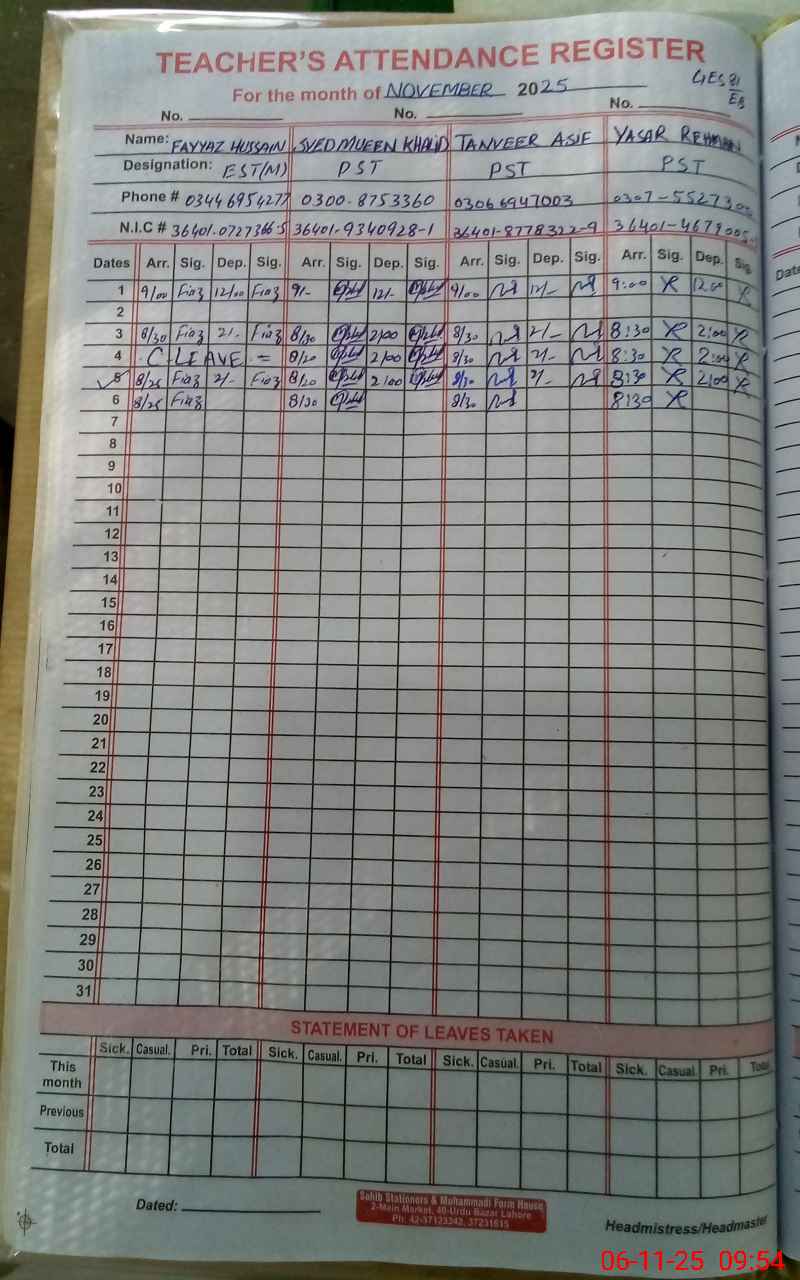 TEACHER'S ATTENDANCE REGISTER
For the month of NOVEMBER 2025
No. No. No.
Name: FAYYAZ HUSSAIN SYED MUEEN KHALID TANVEER ASIF YASAR REHMAN
Designation: EST(M) PST PST PST
Phone # 03446954277 0300-8753360 03066947003 0307-55273
N.I.C # 36401-0727366-5 36401-9340928-1 36401-8778322-9 36401-4679005
Dates Arr. Sig. Dep. Sig. Arr. Sig. Dep. Sig. Arr. Sig. Dep. Sig. Arr. Sig. Dep. Sig.
1 9/00 Fiaz 12/00 Fiaz 9/- 12/- 9/00 12/- 9:00 12:00
2
3 8/30 Fiaz 2/- Fiaz 8/30 2/00 8/30 2/- 8:30 2:00
4 C LEAVE = 8/20 2/00 8/30 2/- 8:30 2:00
5 8/25 Fiaz 2/- Fiaz 8/20 2/00 8/30 2/- 8:30 2:00
6 8/25 Fiaz 8/30 8/30 8:30
7
8
9
10
11
12
13
14
15
16
17
18
19
20
21
22
23
24
25
26
27
28
29
30
31
STATEMENT OF LEAVES TAKEN
Sick. Casual. Pri. Total Sick. Casual. Pri. Total Sick. Casual. Pri. Total Sick. Casual. Pri. Total
This month
Previous
Total
Dated:
Sahib Stationers & Muhammadi Form House
2-Main Market, 40-Urdu Bazar Lahore
Ph: 42-37123242, 37231615
Headmistress/Headmaster
06-11-25 09:54